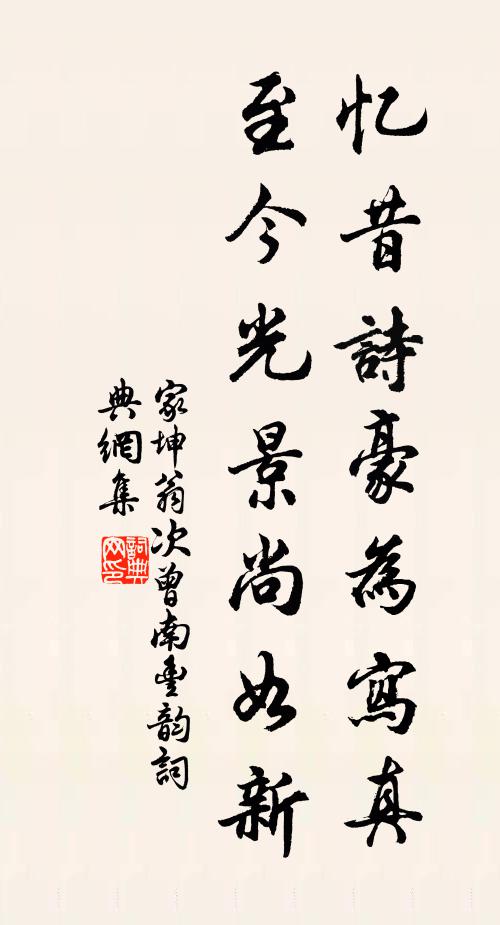 忆昔詩豪為寫真
至今光景尚如新
家坤翁次曾南豐韵詞
典網集
詞典
网印